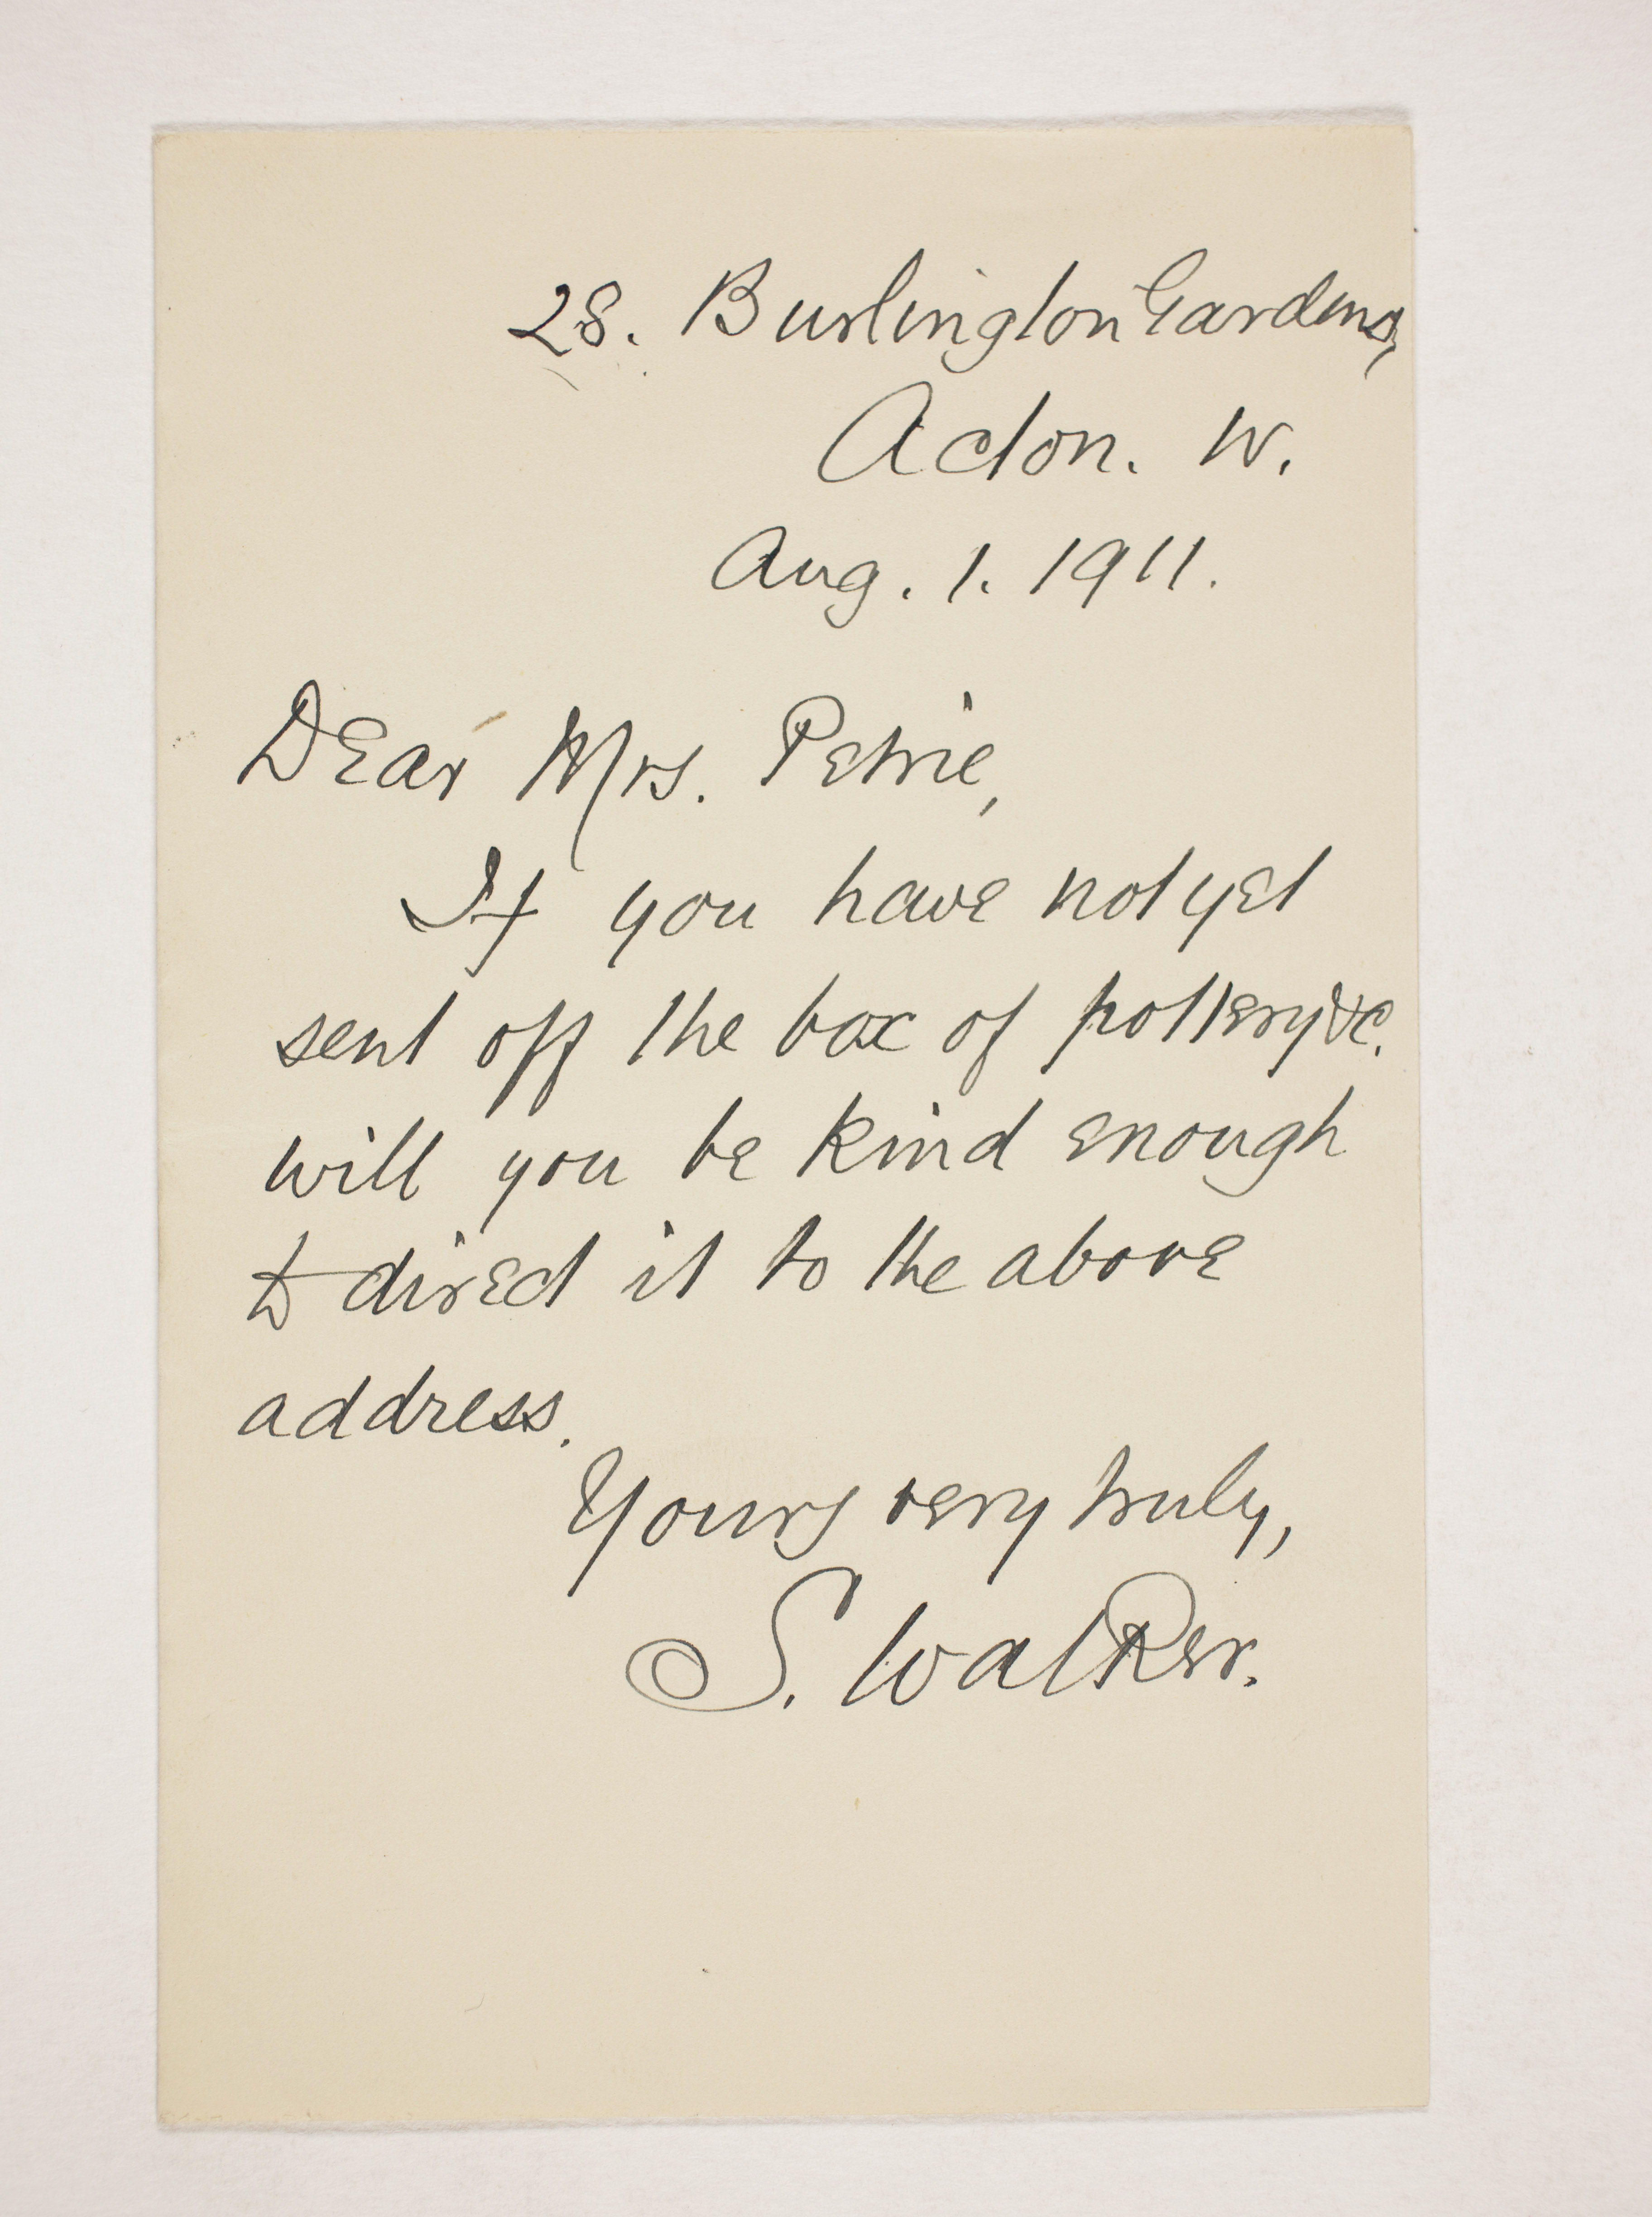 28. Burlington Gardens,
Acton. W.
Aug. 1. 1911.
Dear Mrs. Petrie,
If you have not yet
sent off the box of pottery &c.
will you be kind enough
to direct it to the above
address.
Yours very truly,
S. Walker.